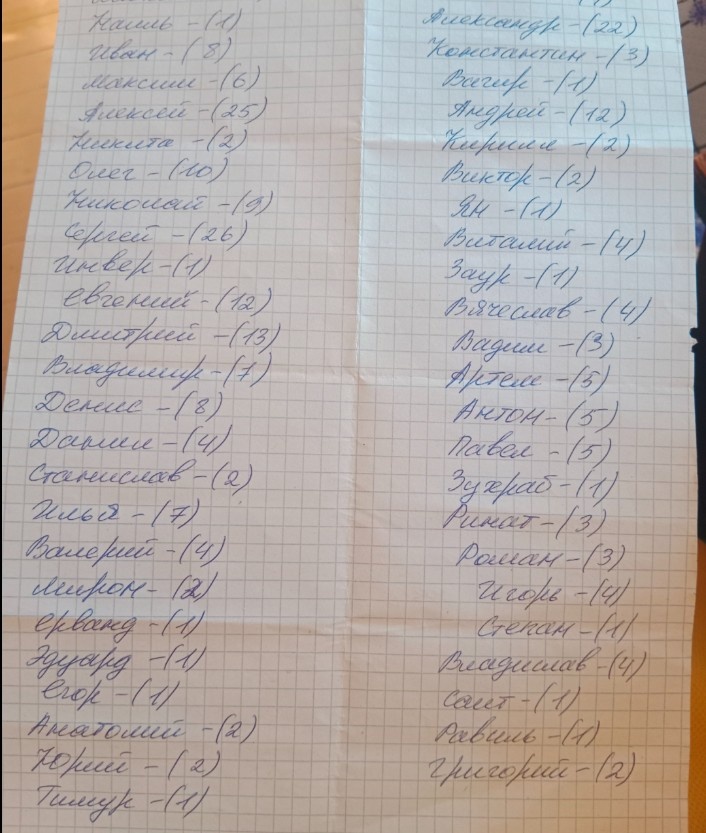 Наиль - (1)
Иван - (8)
Максим - (6)
Алексей - (25)
Никита - (2)
Олег - (10)
Николай - (9)
Сергей - (26)
Инвер - (1)
Евгений - (12)
Дмитрий - (13)
Владимир - (7)
Денис - (8)
Данил - (4)
Станислав - (2)
Илья - (7)
Валерий - (4)
Мирон - (2)
Ерванд - (1)
Эдуард - (1)
Егор - (1)
Анатолий - (2)
Юрий - (2)
Тимур - (1)
Александр - (22)
Константин - (3)
Вагир - (1)
Андрей - (12)
Кирилл - (2)
Виктор - (2)
Ян - (1)
Виталий - (4)
Заур - (1)
Вячеслав - (4)
Вадим - (3)
Артем - (5)
Антон - (5)
Павел - (5)
Зухраб - (1)
Ринат - (3)
Роман - (3)
Игорь - (4)
Степан - (1)
Владислав - (4)
Саит - (1)
Равиль - (1)
Григорий - (2)